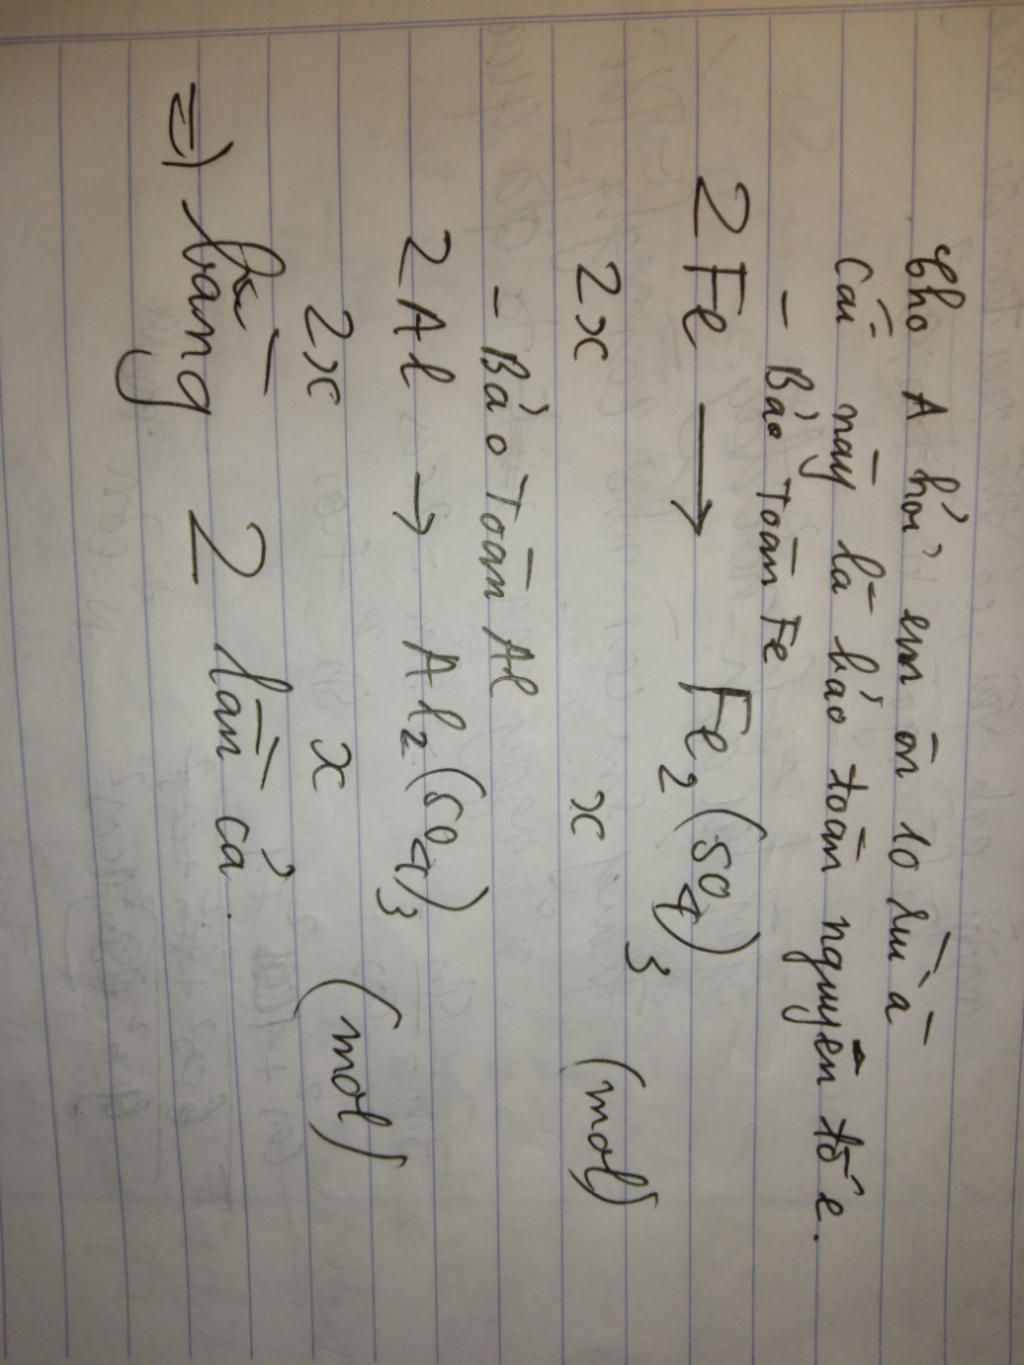 Cho A hỏi em ôn lo lửu à
Cái này là bảo toàn nguyên tố e.
- Bảo Toàn Fe
2Fe → Fe2(SO4)3
2x x (mol)
- Bảo Toàn Al
2Al → Al2(SO4)3
2x x (mol)
=) bằng 2 lần cả.